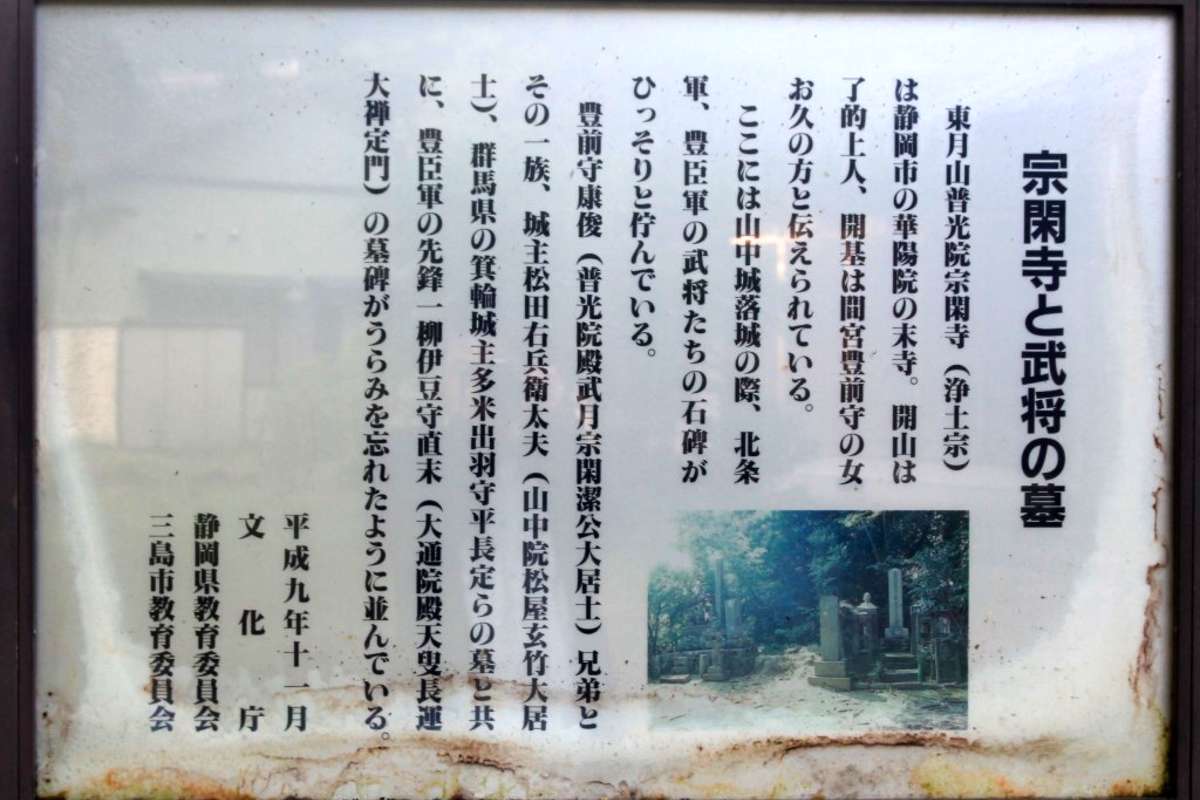 宗閑寺と武将の墓
東月山普光院宗閑寺（浄土宗）
は静岡市の華陽院の末寺。開山は
了的上人、開基は間宮豊前守の女
お久の方と伝えられている。
ここには山中城落城の際、北条
軍、豊臣軍の武将たちの石碑が
ひっそりと佇んでいる。
豊前守康俊（普光院殿武月宗閑潔公大居士）兄弟と
その一族、城主松田右兵衛太夫（山中院松屋玄竹大居
士）、群馬県の箕輪城主多米出羽守平長定らの墓と共
に、豊臣軍の先鋒一柳伊豆守直末（大通院殿天叟長運
大禅定門）の墓碑がうらみを忘れたように並んでいる。
平成九年十一月
文化庁
静岡県教育委員会
三島市教育委員会